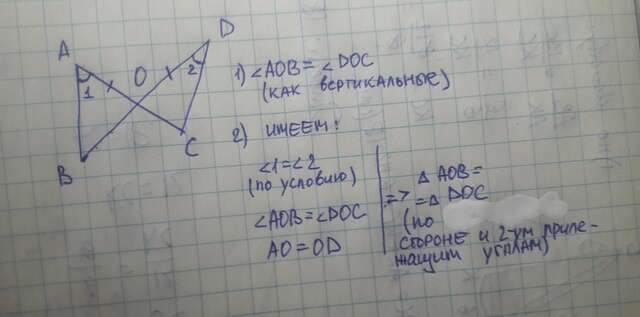 A
O
D
1
2
B
C
1) ∠AOB = ∠DOC
(КАК ВЕРТИКАЛЬНЫЕ)
2) ИМЕЕМ:
∠1=∠2
(по условию)
∠AOB=∠DOC
AO=OD
=> △ AOB=
=△ DOC
(по
СТОРОНЕ и 2-ум приле-
жащим углам)